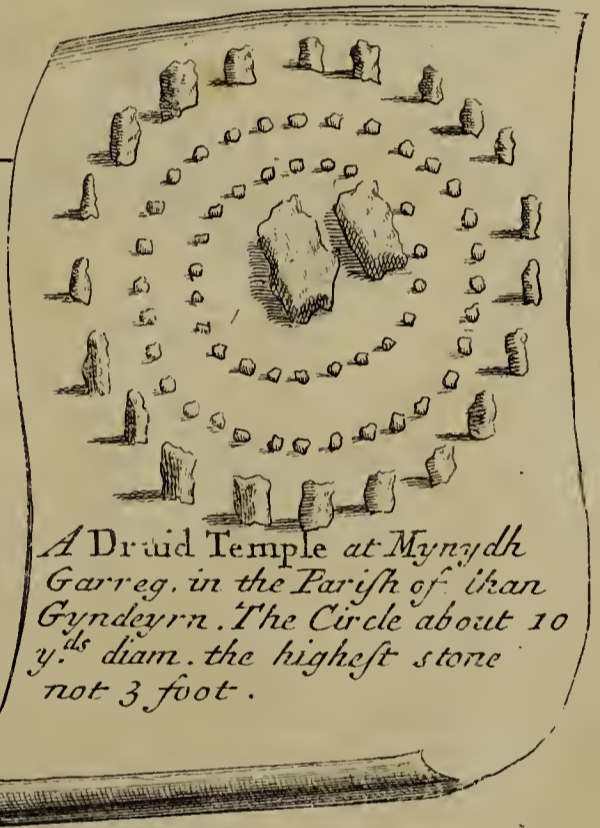 A Druid Temple at Mynydh
Garreg. in the Pariſh of lhan
Gyndeyrn. The Circle about 10
y.ds diam. the higheſt stone
not 3 foot.